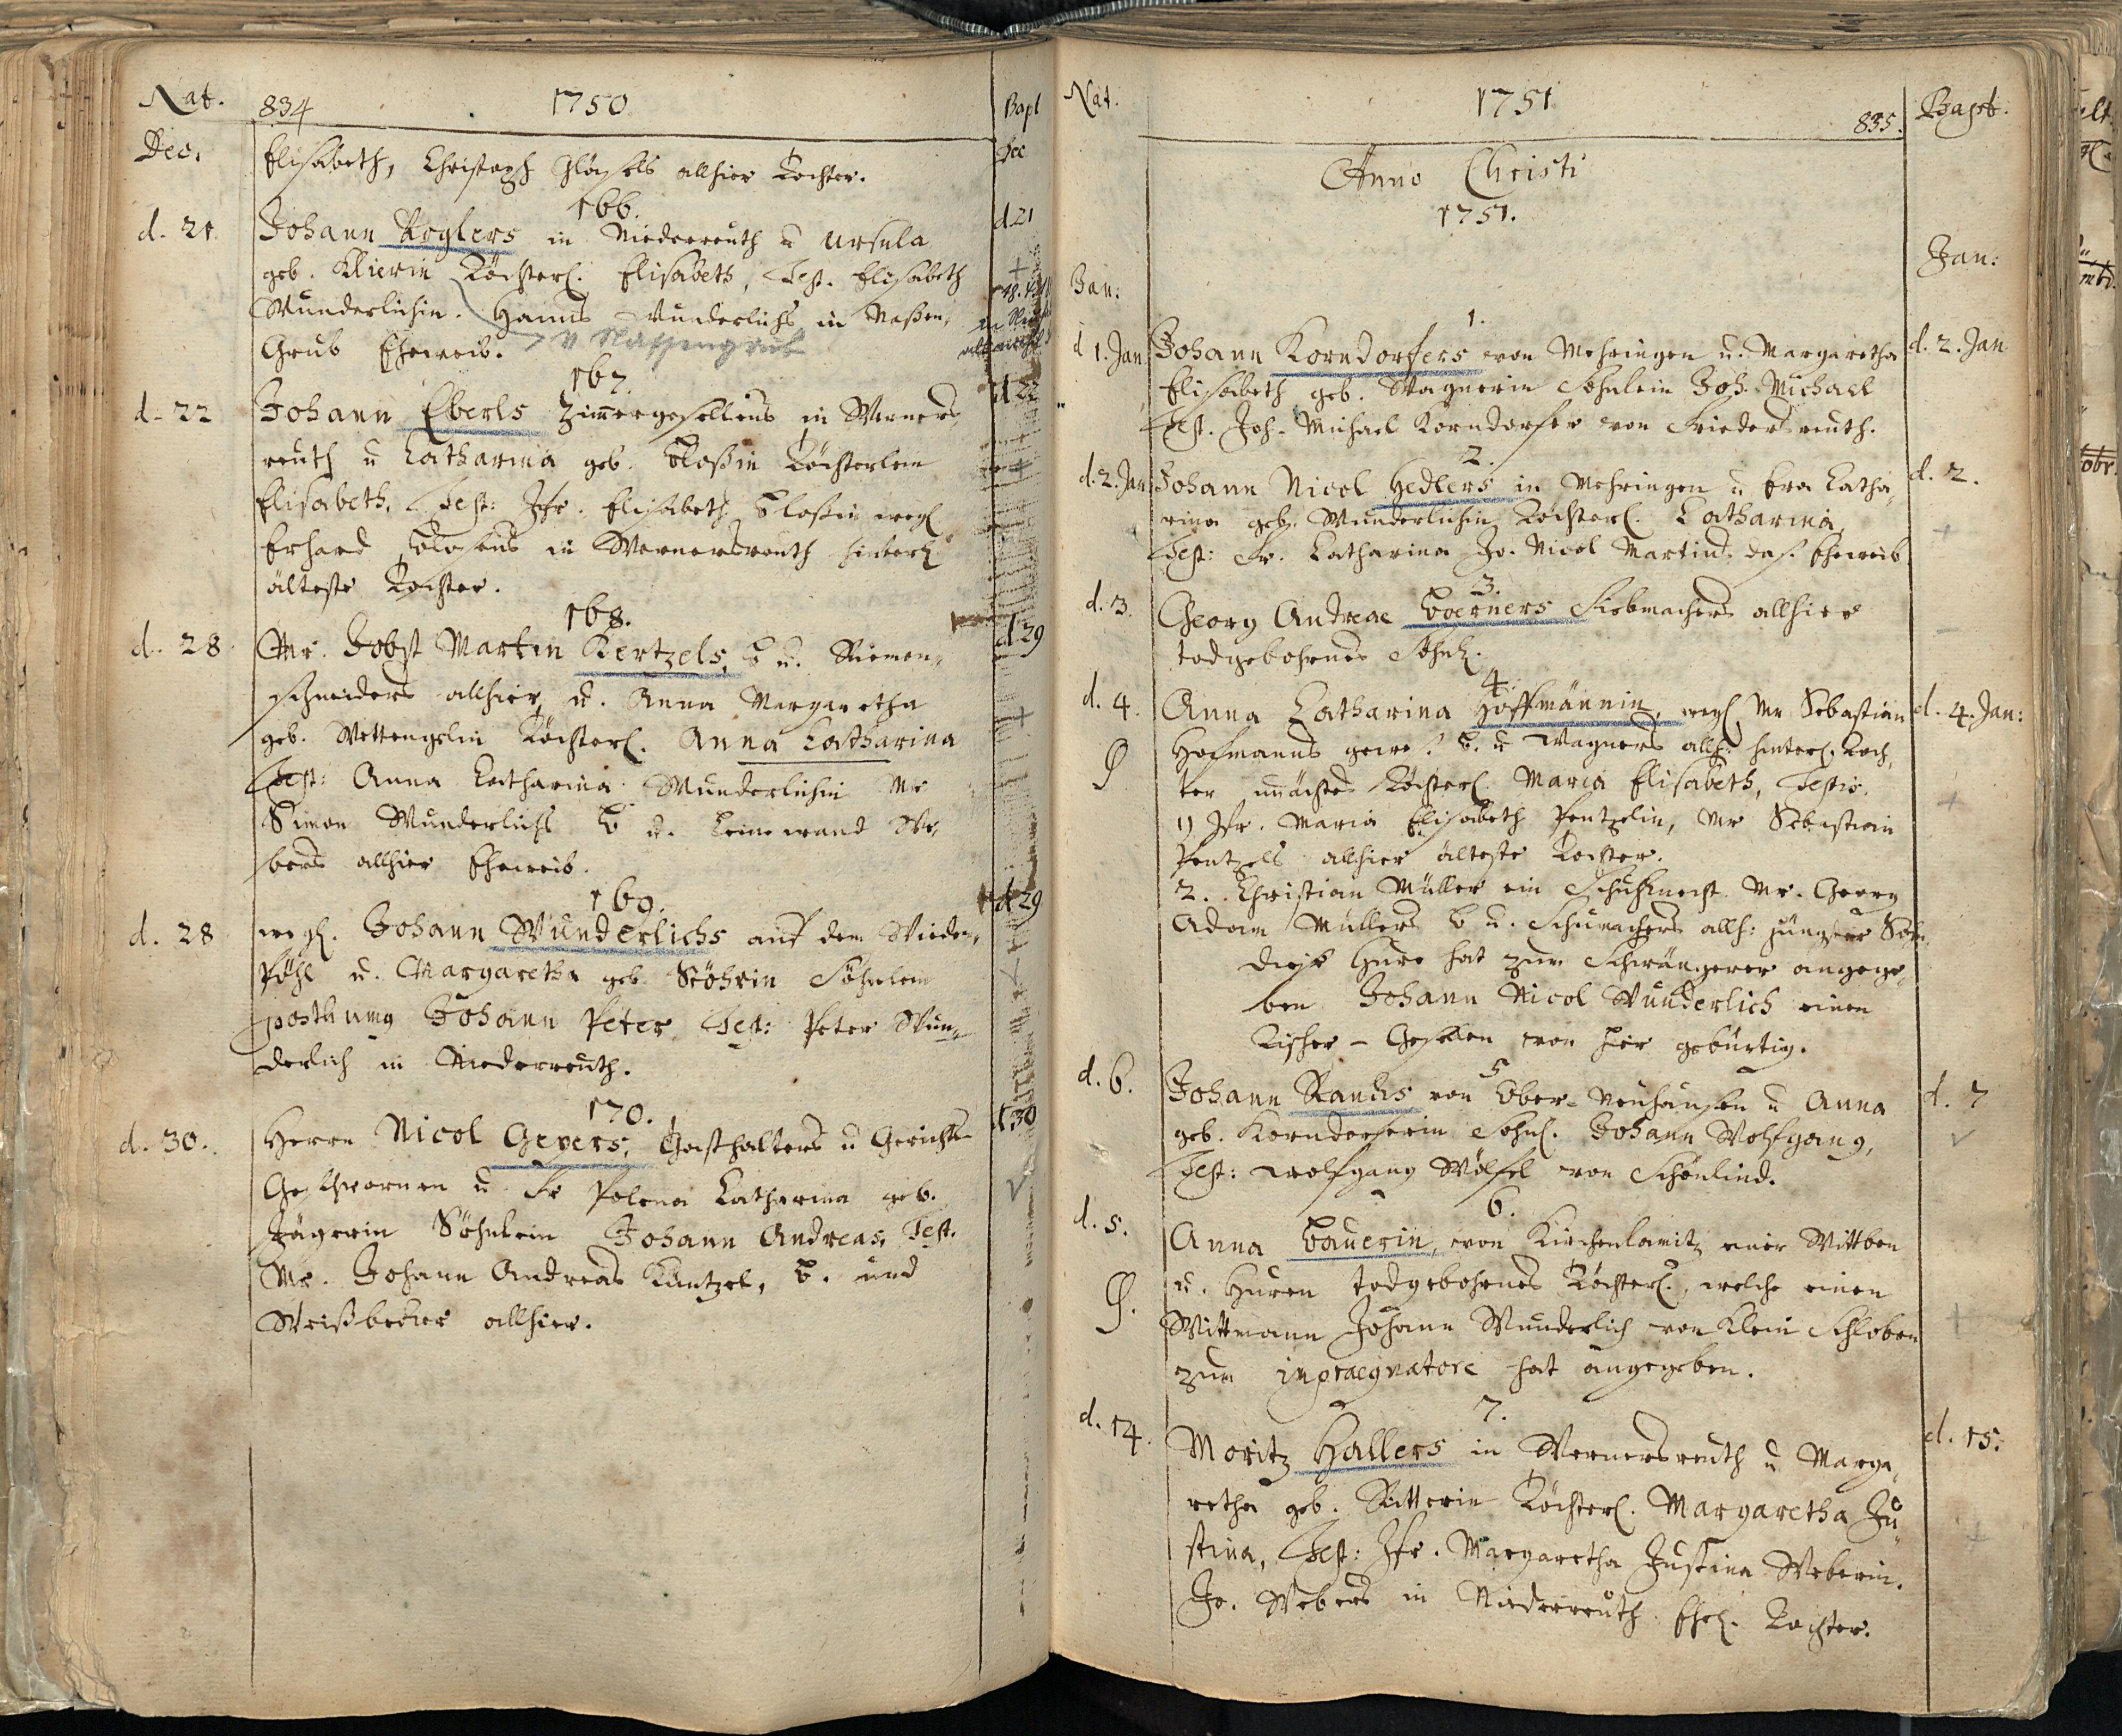 Nat. 834 1750 Bapt
Dec. Dec
Elisabeth, Christoph Gläsels allhier Tochter.
166.
d. 21. Johann Roglers in Niederreuth u Ursula d 21
geb. Klierin Töchterl. Elisabeth, Test. Elisabeth
Wunderlichin. Hanns Wunderlichs in Naßen,
Grub Eheweib. v Nassengrub
167.
d. 22 Johann Eberls Zimmergesellens in Werners, d 22
reuth u Catharina geb. Bloßin Töchterlein
Elisabeth. Test: Jfr. Elisabeth Bloßin weyl
Erhard Bloßens in Wernersreuth hinterl.
älteste Tochter.
168.
d. 28. Mr. Jobst Martin Kertzels, B u. Riemen, d 29
schneiders allhier, u. Anna Margaretha
geb. Wettengelin Töchterl. Anna Catharina
Test: Anna Catharina Wunderlichin Mr
Simon Wunderlichs B u. Leinewand We,
bers allhier Eheweib.
169.
d. 28 weyl. Johann Wunderlichs auf dem Wieden, d 29
Pöhl u. Margaretha geb. Stöhrin Söhnlein
posthumg Johann Peter Test: Peter Wun-
derlich in Niederreuth.
170.
d. 30. Herrn Nicol Geyers, Gasthalters u Gerichts- d 30
Geschwornen u Fr Polena Catharina geb.
Jägerin Söhnlein Johann Andreas, Test.
Mr. Johann Andreas Küntzel, B. und
Weißbecker allhier.
Nat. 1751 835. Bapt:
Anno Christi
1751.
Jan: Jan:
1.
d 1. Jan Johann Korndorfers von Mehringen u. Margaretha d. 2. Jan
Elisabeth geb. Wagnerin Söhnlein Joh. Michael
Test. Joh. Michael Korndorfer von Friedersreuth.
2.
d. 2. Jan Johann Nicol Hedlers in Mehringen u Eva Catha, d. 2.
rina geb. Wunderlichin Töchterl. Catharina,
Test: Fr. Catharina Jo. Nicol Martins das. Eheweib
3.
d. 3. Georg Andreae Boerners Siebmachers allhier
todgebohrnes Söhnl.
4.
d. 4. Anna Catharina Hoffmännin, weyl Mr Sebastian d. 4. Jan:
Hofmanns gewes. B. u Wagners allh: hinterl. Toch,
ter unächtes Töchterl. Maria Elisabeth, Testes.
1) Jfr. Maria Elisabeth Pentzelin, Mr Sebastian
Pentzels allhier älteste Tochter.
2. Christian Müller ein Schuhknecht Mr. Georg
Adam Müllers B u. Schumachers allh: jüngster Sohn
Diese Hure hat zum Schwängerer angege,
ben Johann Nicol Wunderlich einen
Tischer-Gesellen von hier gebürtig.
5
d. 6. Johann Rauhs von Ober-Neuhausen u Anna d. 7
geb. Korndorferin Söhnl. Johann Wolfgang,
Test: Wolfgang Wölfel von Schönlind.
6.
d. 5. Anna Bauerin, von Kirchenlamitz einer Wittben
u. Huren todgebohrnes Töchterl., welche einen
Wittmann Johann Wunderlich von Klein Schloben
zum inpraegnatore hat angegeben.
7.
d. 14. Moritz Hallers in Wernersreuth u Marga, d. 15.
retha geb. Ritterin Töchterl. Margaretha Ju
stina, Test: Jfr. Margaretha Justina Weberin.
Jo. Webers in Niederreuth Ehel. Tochter.